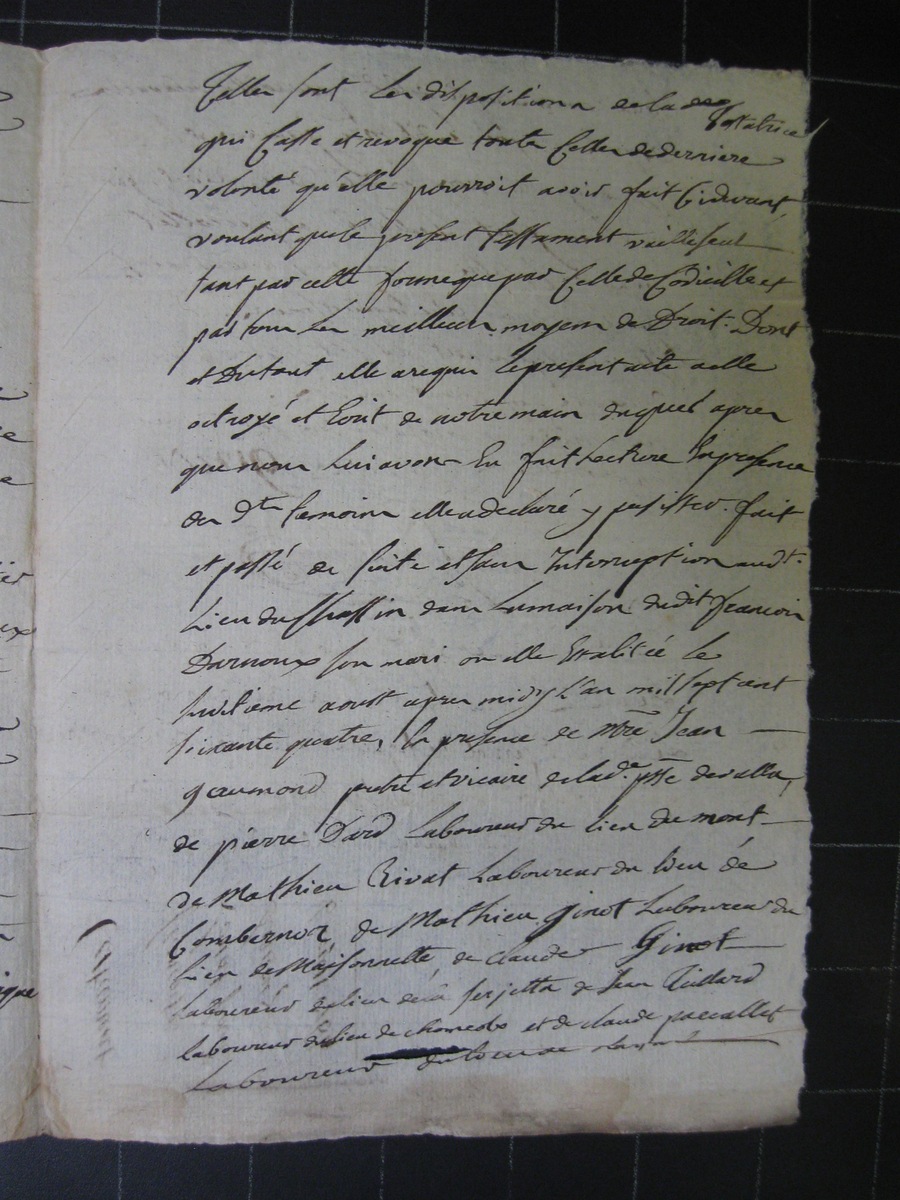 Telles sont les dispositions de lade testatrice
qui Casse et revoque toute Celles de derniere
volonté qu'elle pourroit avoir fait Cidevant,
voulant que le present testament vaille seul
tant par cette forme que par Celle de Codicille et
par tous les meilleurs moyens de Droit. Dont
et Du tout elle a requis le present acte a elle
octroyé et Ecrit de notre main duquel apres
que nous lui avons En fait Lecture En presence
des dts temoins elle a declaré y persister. fait
et passé de suite et sans Interruption audt.
Lieu du dans la maison dudit francois
Darnoux son mari ou elle Est alitée le
huitieme aoust apres midy L'an mil sept cent
soixante quatre, En presence de Mre Jean
gaumond pretre et vicaire de lade. psse de valla,
de pierre Dard Laboureur du lieu du mont
de Mathieu Rivat Laboureur du lieu de
Combernod, de Mathieu ginot Laboureur du
lieu de Maisonnette de claude Ginot
laboureur du lieu de de Jean Tissard
laboureur du lieu de chomedo et de claude paccallet
Laboureur du lieu de